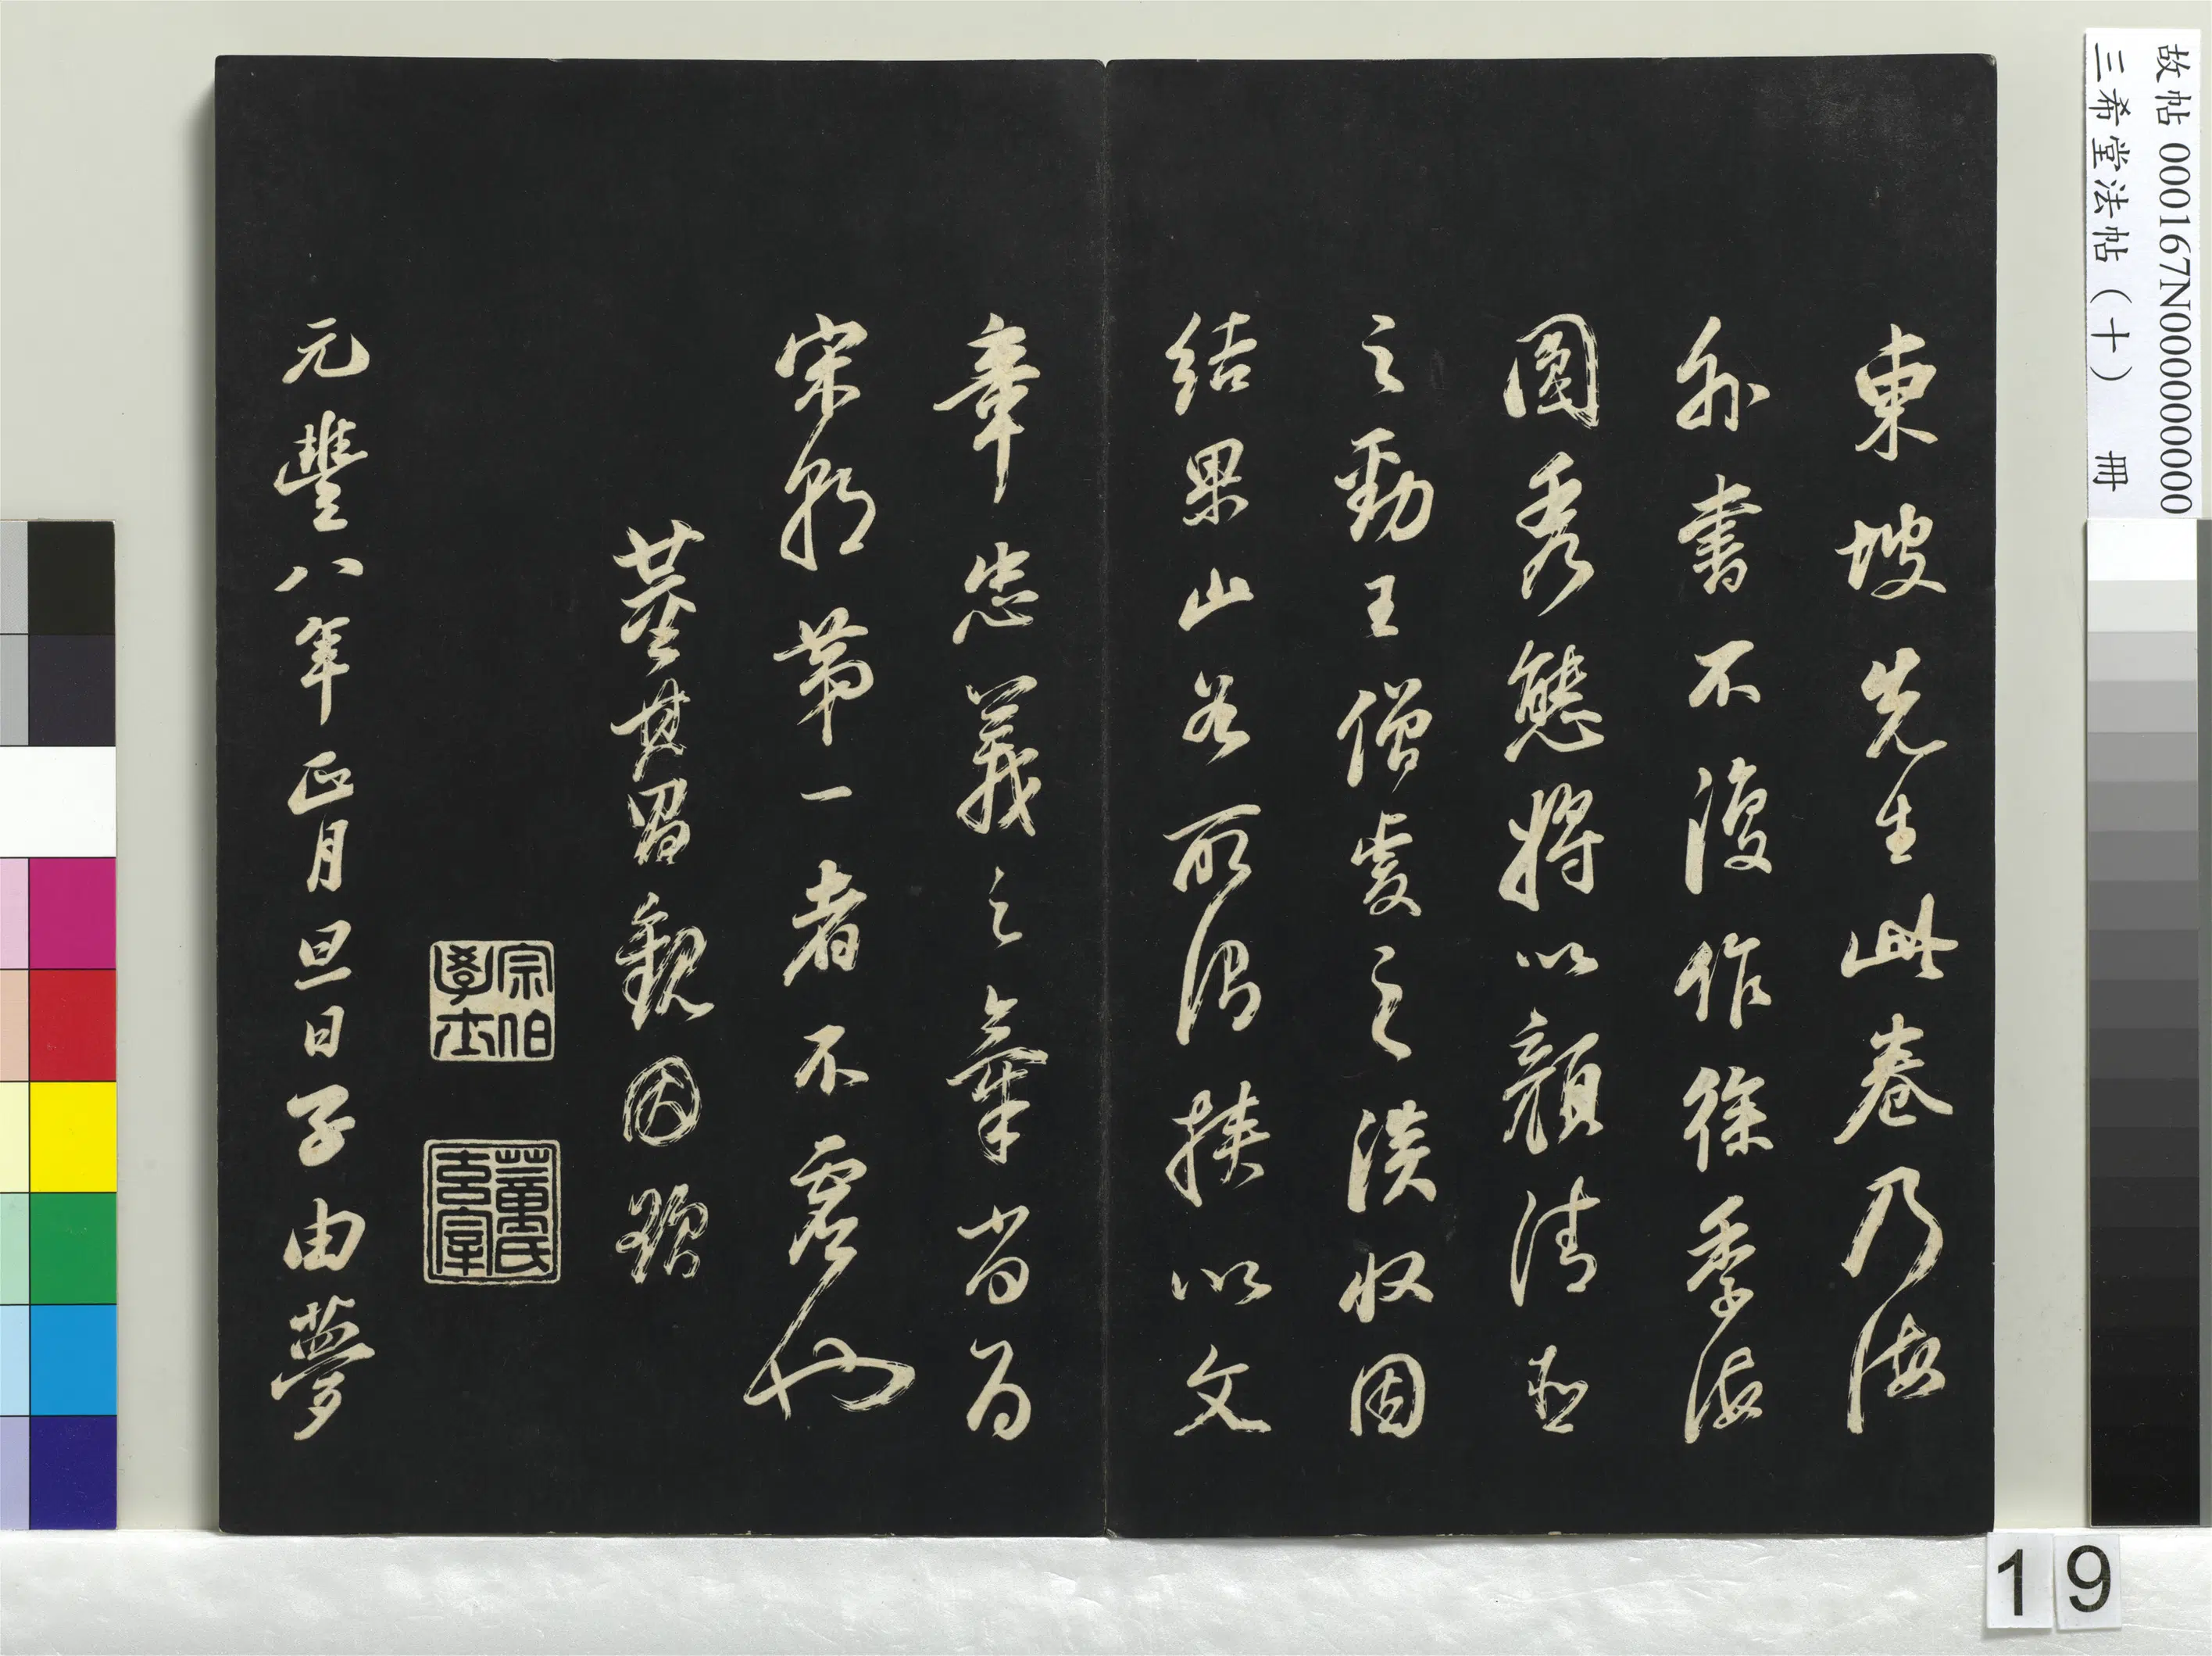 故帖 000167N000000000
三希堂法帖（十） 冊
東坡先生此卷乃海
外書不復作徐季海
圓秀態將以顏清臣
之勁王僧虔之淡收因
結果山谷所謂挾以文
章忠義之氣當為
宋朝第一者不虛也
董其昌觀因題
宗伯學士
董氏玄宰
元豐八年正月旦日子由夢
19